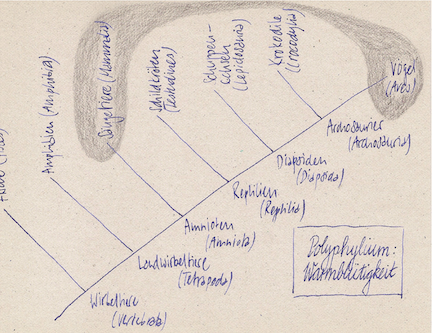 Amphibien (Amphibia)
Säugetiere (Mammalia)
Schildkröten
(Testudines)
Schuppen-
echsen
(Lepidosauria)
Krokodile
(Crocodylia)
Vögel
(Aves)
Archosaurier
(Archosauria)
Diapsiden
(Diapsida)
Reptilien
(Reptilia)
Amnioten
(Amniota)
Landwirbeltiere
(Tetrapoda)
Wirbeltiere
(Vertebrata)
Polyphylium:
Warmblütigkeit